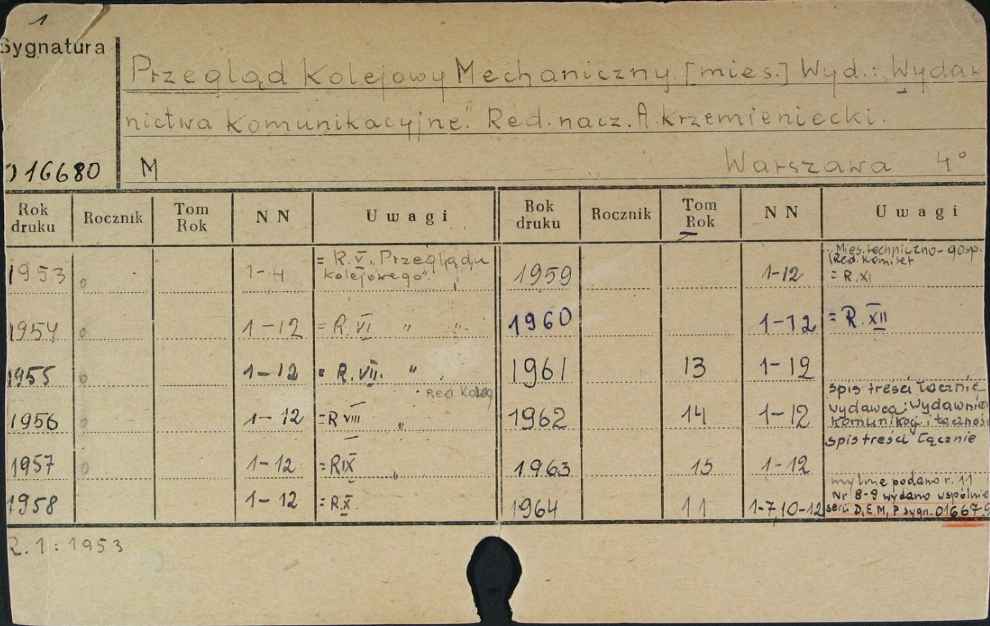 1
Sygnatura
Przegląd Kolejowy Mechaniczny [mies.] Wyd.: "Wydaw
nictwa Komunikacyjne." Red. nacz. A. Krzemieniecki.
016680 M Warszawa 4°
Rok druku Rocznik Tom Rok NN Uwagi Rok druku Rocznik Tom Rok NN Uwagi
1953 0 1-4 = R. V. Przeglądu Kolejowego". 1959 1-12 Mies. techniczno-gosp. Red. Komitet = R. XI
1954 0 1-12 = R. VI " " 1960 1-12 = R. XII
1955 0 1-12 = R. VII. " 1961 13 1-12
Red. Koleg
1956 0 1-12 = R VIII " 1962 14 1-12 spis treści łącznie wydawca: Wydawnic Komunikacj. i łącznośc
1957 0 1-12 = R IX " 1963 15 1-12 spis treści łącznie
1958 1-12 = R X. 1964 11 1-7, 10-12 mylnie podano r. 11 Nr 8-9 wydano wspólnie serii D, E, M, P sygn. 016679
R. 1: 1953